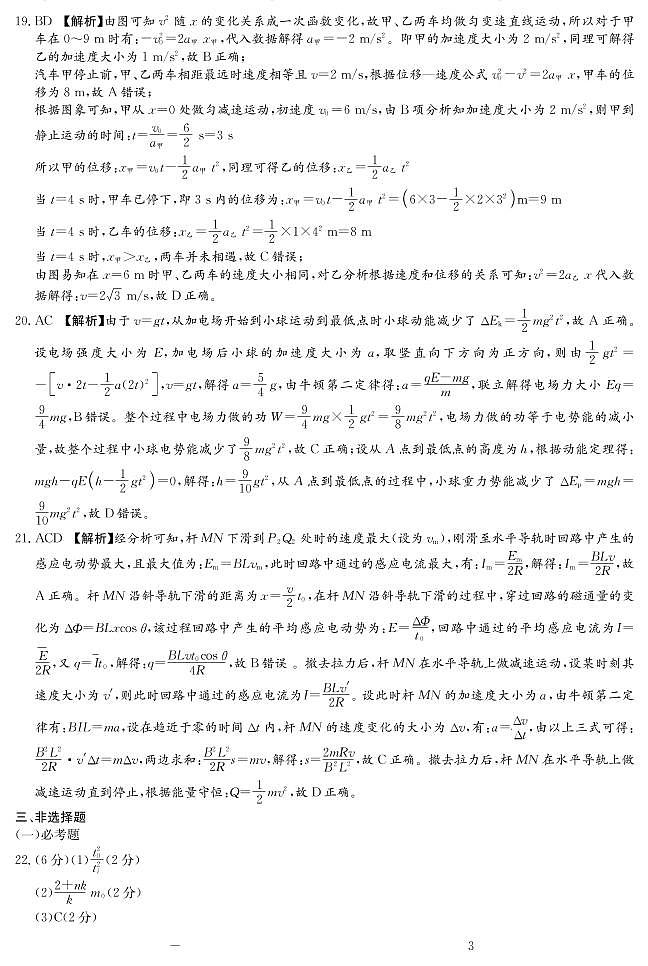 19. BD 【解析】由图可知 v² 随 x 的变化关系成一次函数变化,故甲、乙两车均做匀变速直线运动,所以对于甲
车在 0～9 m 时有:-v₀²=2a甲 x甲,代入数据解得 a甲=-2 m/s²。即甲的加速度大小为 2 m/s²,同理可解得
乙的加速度大小为 1 m/s²,故 B 正确;
汽车甲停止前,甲、乙两车相距最远时速度相等且 v=2 m/s,根据位移—速度公式 v₀²-v²=2a甲 x,甲车的位
移为 8 m,故 A 错误;
根据图象可知,甲从 x=0 处做匀减速运动,初速度 v₀=6 m/s,由 B 项分析知加速度大小为 2 m/s²,则甲到
静止运动的时间:t=v₀/a甲=6/2 s=3 s
所以甲的位移:x甲=v₀t-1/2 a甲 t²,同理可得乙的位移:x乙=1/2 a乙 t²
当 t=4 s 时,甲车已停下,即 3 s 内的位移为:x甲=v₀t-1/2 a甲 t²=(6×3-1/2×2×3²)m=9 m
当 t=4 s 时,乙车的位移:x乙=1/2 a乙 t²=1/2×1×4² m=8 m
当 t=4 s 时,x甲>x乙,两车并未相遇,故 C 错误;
由图易知在 x=6 m 时甲、乙两车的速度大小相同,对乙分析根据速度和位移的关系可知:v²=2a乙 x 代入数
据解得:v=2√3 m/s,故 D 正确。
20. AC 【解析】由于 v=gt,从加电场开始到小球运动到最低点时小球动能减少了 ΔEₖ=1/2 mg²t²,故 A 正确。
设电场强度大小为 E,加电场后小球的加速度大小为 a,取竖直向下方向为正方向,则由 1/2 gt²=
-[v·2t-1/2 a(2t)²],v=gt,解得 a=5/4 g,由牛顿第二定律得:a=(qE-mg)/m,联立解得电场力大小 Eq=
9/4 mg,B 错误。整个过程中电场力做的功 W=9/4 mg×1/2 gt²=9/8 mg²t²,电场力做的功等于电势能的减小
量,故整个过程中小球电势能减少了 9/8 mg²t²,故 C 正确;设从 A 点到最低点的高度为 h,根据动能定理得:
mgh-qE(h-1/2 gt²)=0,解得:h=9/10 gt²,从 A 点到最低点的过程中,小球重力势能减少了 ΔEₚ=mgh=
9/10 mg²t²,故 D 错误。
21. ACD 【解析】经分析可知,杆 MN 下滑到 P₂Q₂ 处时的速度最大(设为 vₘ),刚滑至水平导轨时回路中产生的
感应电动势最大,且最大值为:Eₘ=BLvₘ,此时回路中通过的感应电流最大,有:Iₘ=Eₘ/2R,解得:Iₘ=BLv/2R,故
A 正确。杆 MN 沿斜导轨下滑的距离为 x=v/2 t₀,在杆 MN 沿斜导轨下滑的过程中,穿过回路的磁通量的变
化为 ΔΦ=BLxcos θ,该过程回路中产生的平均感应电动势为:E=ΔΦ/t₀,回路中通过的平均感应电流为 I=
E̅/2R,又 q=I̅t₀,解得:q=BLvt₀cos θ/4R,故 B 错误 。撤去拉力后,杆 MN 在水平导轨上做减速运动,设某时刻其
速度大小为 v′,则此时回路中通过的感应电流为 I=BLv′/2R。设此时杆 MN 的加速度大小为 a,由牛顿第二定
律有:BIL=ma,设在趋近于零的时间 Δt 内,杆 MN 的速度变化的大小为 Δv,有:a=Δv/Δt,由以上三式可得:
B²L²/2R·v′Δt=mΔv,两边求和:B²L²/2R s=mv,解得:s=2mRv/B²L²,故 C 正确。撤去拉力后,杆 MN 在水平导轨上做
减速运动直到停止,根据能量守恒:Q=1/2 mv²,故 D 正确。
三、非选择题
(一)必考题
22. (6 分)(1)t₀²/tᵢ²(2 分)
(2)(2+nk)/k m₀(2 分)
(3)C(2 分)
— 3